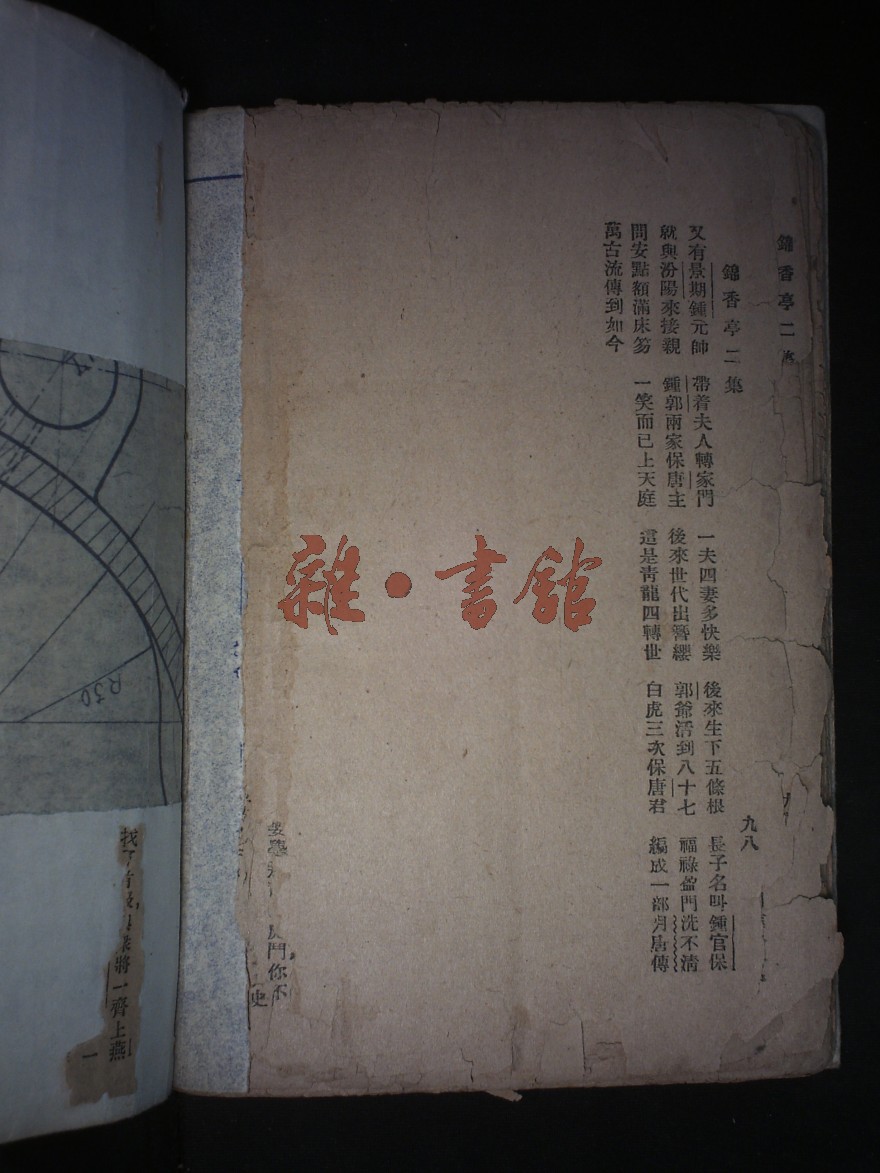 錦香亭二
錦香亭二集
九八
又有景期鍾元帥 帶着夫人轉家門 一夫四妻多快樂 後來生下五條根 長子名叫鍾官保
就與汾陽來接親 鍾郭兩家保唐主 後來世代出簪纓 郭爺活到八十七 福祿盈門洗不清
問安點額滿床笏 一笑而已上天庭 這是靑龍四轉世 白虎三次保唐君 編成一部月唐傳
萬古流傳到如今
雜·書舘
門你不
史
將一齊上燕
一
R30